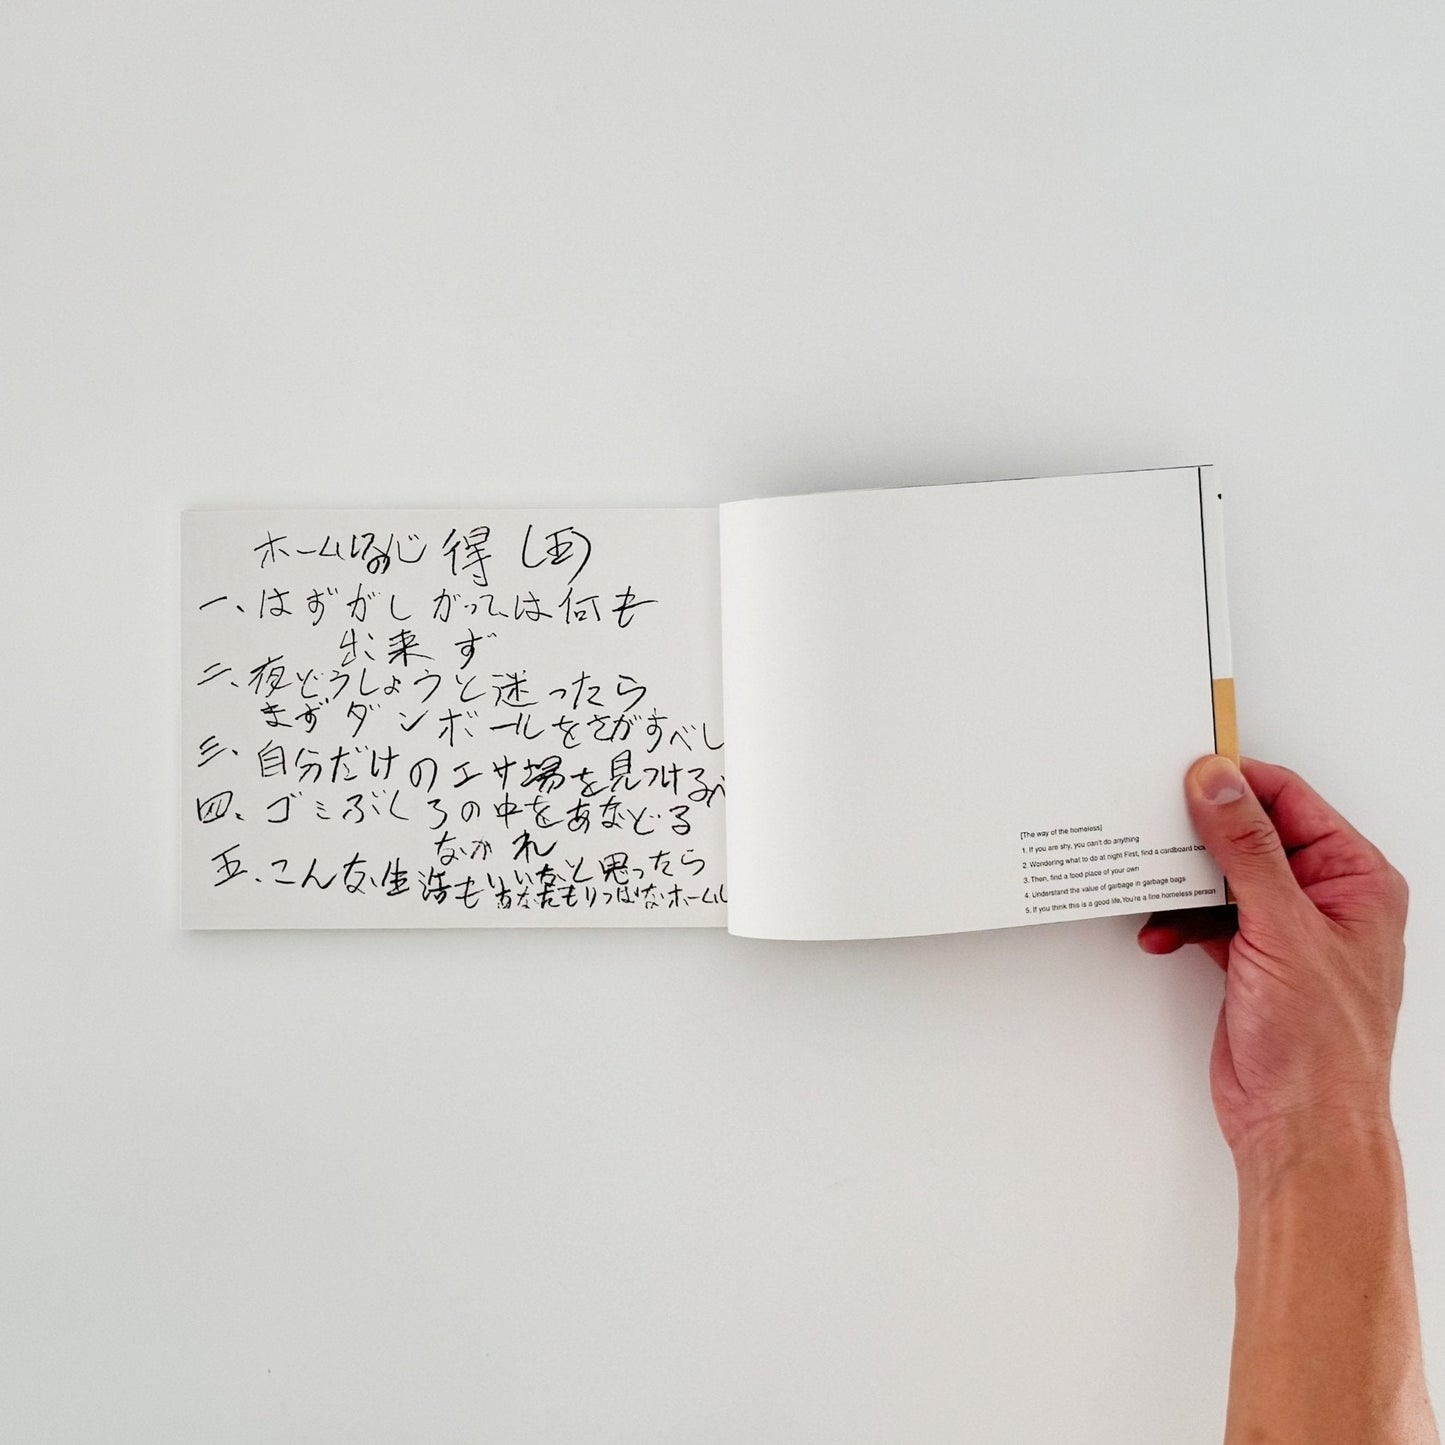 ホームレス心得（五）
一、はずかしがっては何も
出来ず
二、夜どうしようと迷ったら
まずダンボールをさがすべし
三、自分だけのエサ場を見つけるべ
四、ゴミぶくろの中をあなどる
なかれ
五、こんな生活もいいなと思ったら
あなたもりっぱなホームレ
[The way of the homeless]
1. If you are shy, you can't do anything
2. Wondering what to do at night First, find a cardboard box
3. Then, find a food place of your own
4. Understand the value of garbage in garbage bags
5. If you think this is a good life, You're a fine homeless person